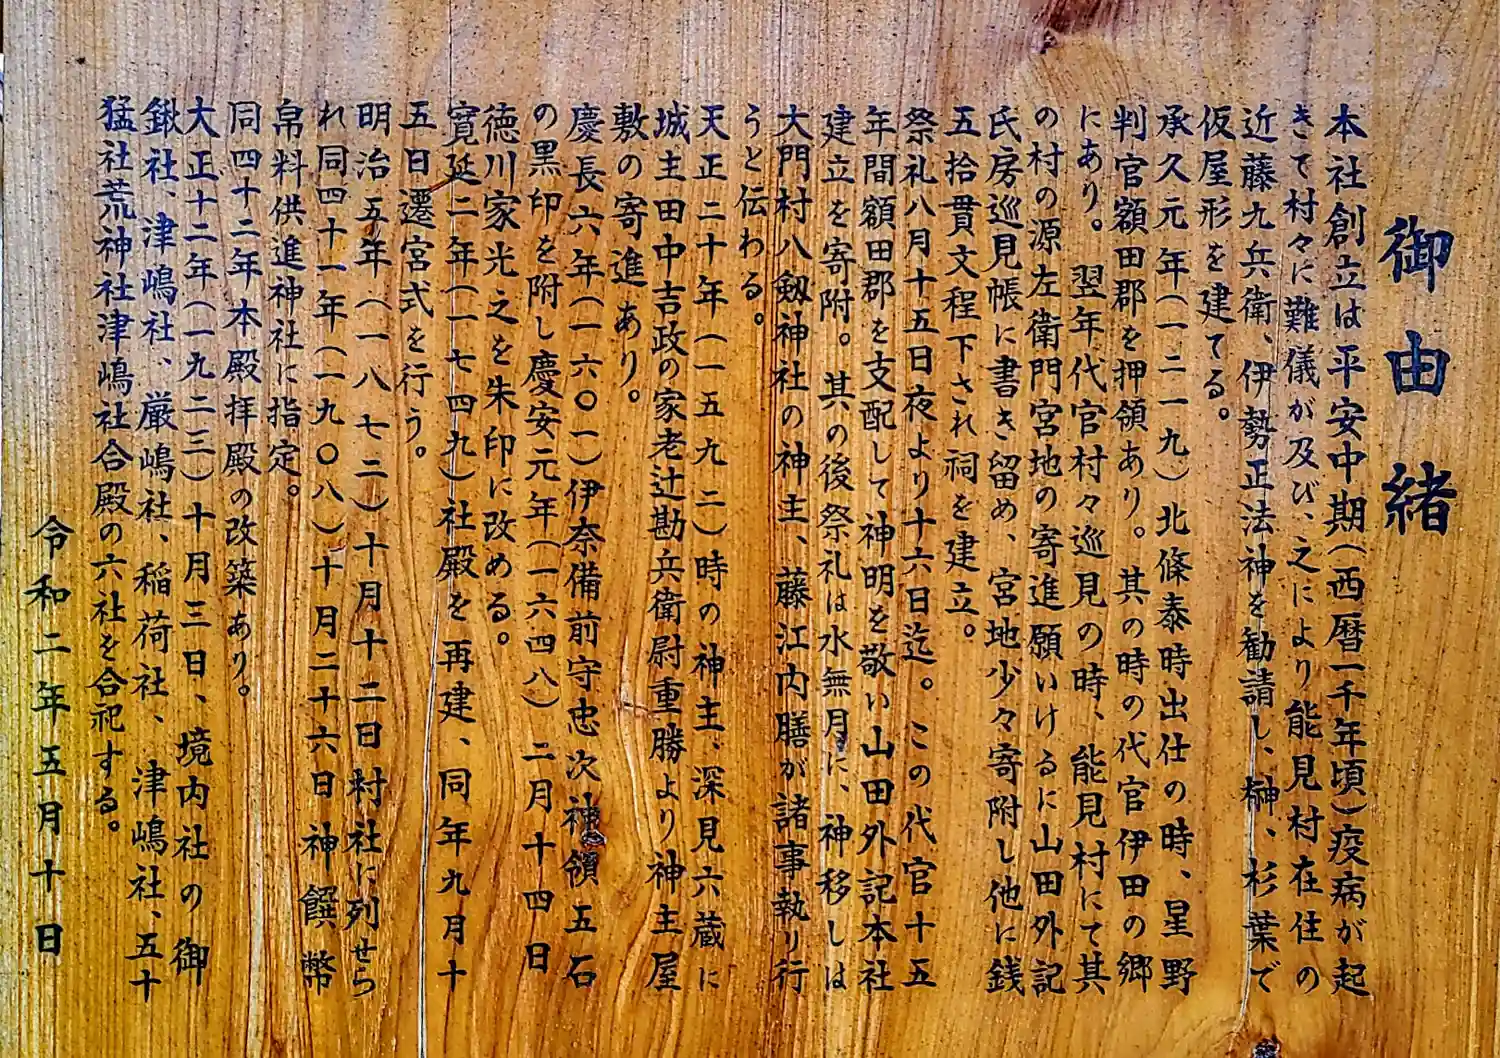 御由緒
本社創立は平安中期(西暦一千年頃)疫病が起
きて村々に難儀が及び、之により能見村在住の
近藤九兵衛、伊勢正法神を勧請し、榊、杉葉で
仮屋形を建てる。
承久元年(一二一九)北條泰時出仕の時、星野
判官額田郡を押領あり。其の時の代官伊田の郷
にあり。翌年代官村々巡見の時、能見村にて其
の村の源左衛門宮地の寄進願いけるに山田外記
氏房巡見帳に書き留め、宮地少々寄附し他に銭
五拾貫文程下され祠を建立。
祭礼八月十五日夜より十六日迄。この代官十五
年間額田郡を支配して神明を敬い山田外記本社
建立を寄附。其の後祭礼は水無月に、神移しは
大門村八剱神社の神主、藤江内膳が諸事執り行
うと伝わる。
天正二十年(一五九二)時の神主、深見六蔵に
城主田中吉政の家老辻勘兵衛尉重勝より神主屋
敷の寄進あり。
慶長六年(一六〇一)伊奈備前守忠次神領五石
の黒印を附し慶安元年(一六四八)二月十四日
徳川家光之を朱印に改める。
寛延二年(一七四九)社殿を再建、同年九月十
五日遷宮式を行う。
明治五年(一八七二)十月十二日村社に列せら
れ同四十一年(一九〇八)十月二十六日神饌幣
帛料供進神社に指定。
同四十二年本殿拝殿の改築あり。
大正十二年(一九二三)十月三日、境内社の御
鍬社、津嶋社、厳嶋社、稲荷社、津嶋社、五十
猛社荒神社津嶋社合殿の六社を合祀する。
令和二年五月十日